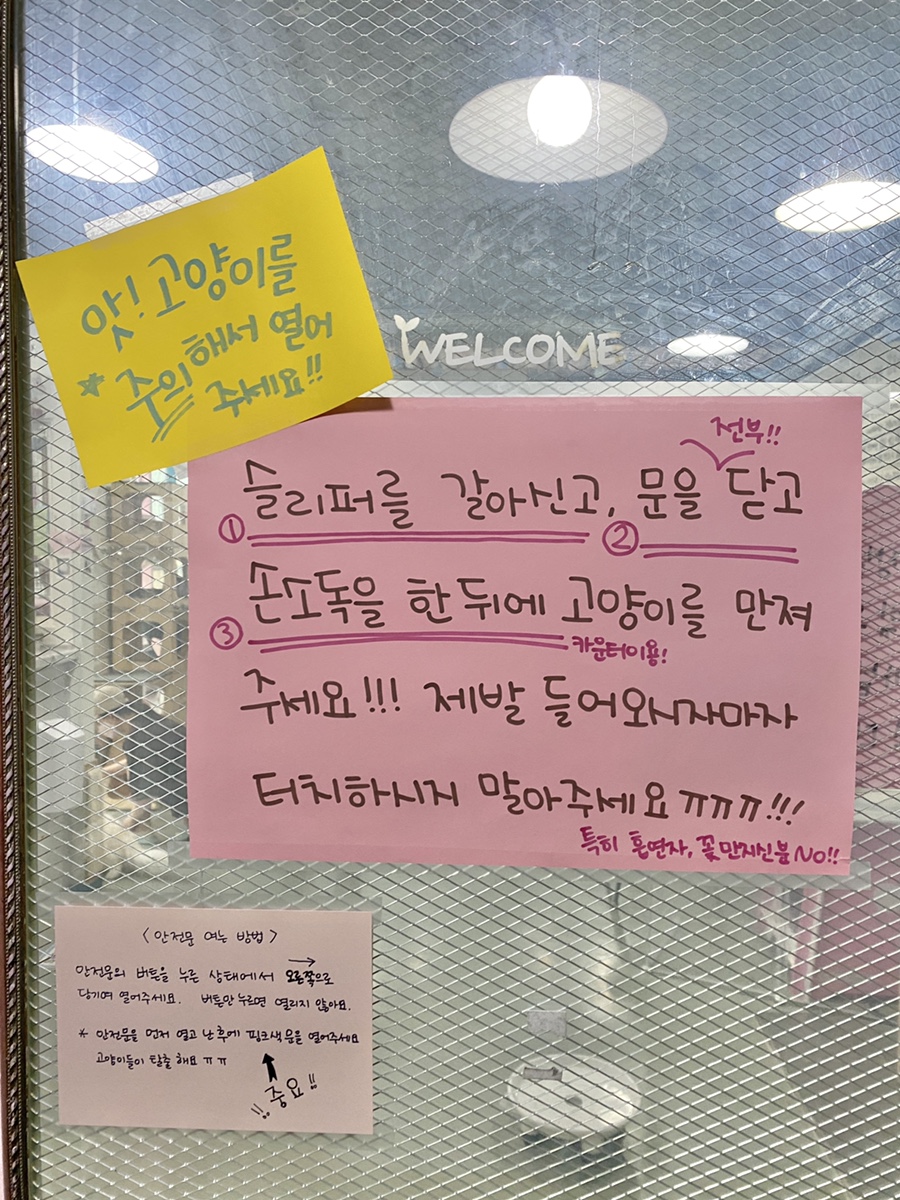 앗! 고양이를
* 주의해서 열어
주세요!!
WELCOME
전부!!
슬리퍼를 갈아신고, 문을 닫고
① ②
손소독을 한 뒤에 고양이를 만져
③ 카운터이용!
주세요!!! 제발 들어오시자마자
터치하시지 말아주세요 ㅠㅠㅠ!!!
특히 흡연자, 꽃 만지신분 NO!!
<안전문 여는 방법>
안전문의 버튼을 누른 상태에서 오른쪽으로
당기며 열어주세요. 버튼만 누르면 열리지 않아요.
* 안전문을 먼저 열고 난 후에 핑크색 문을 열어주세요
고양이들이 탈출 해요 ㅠㅠ
중요!!